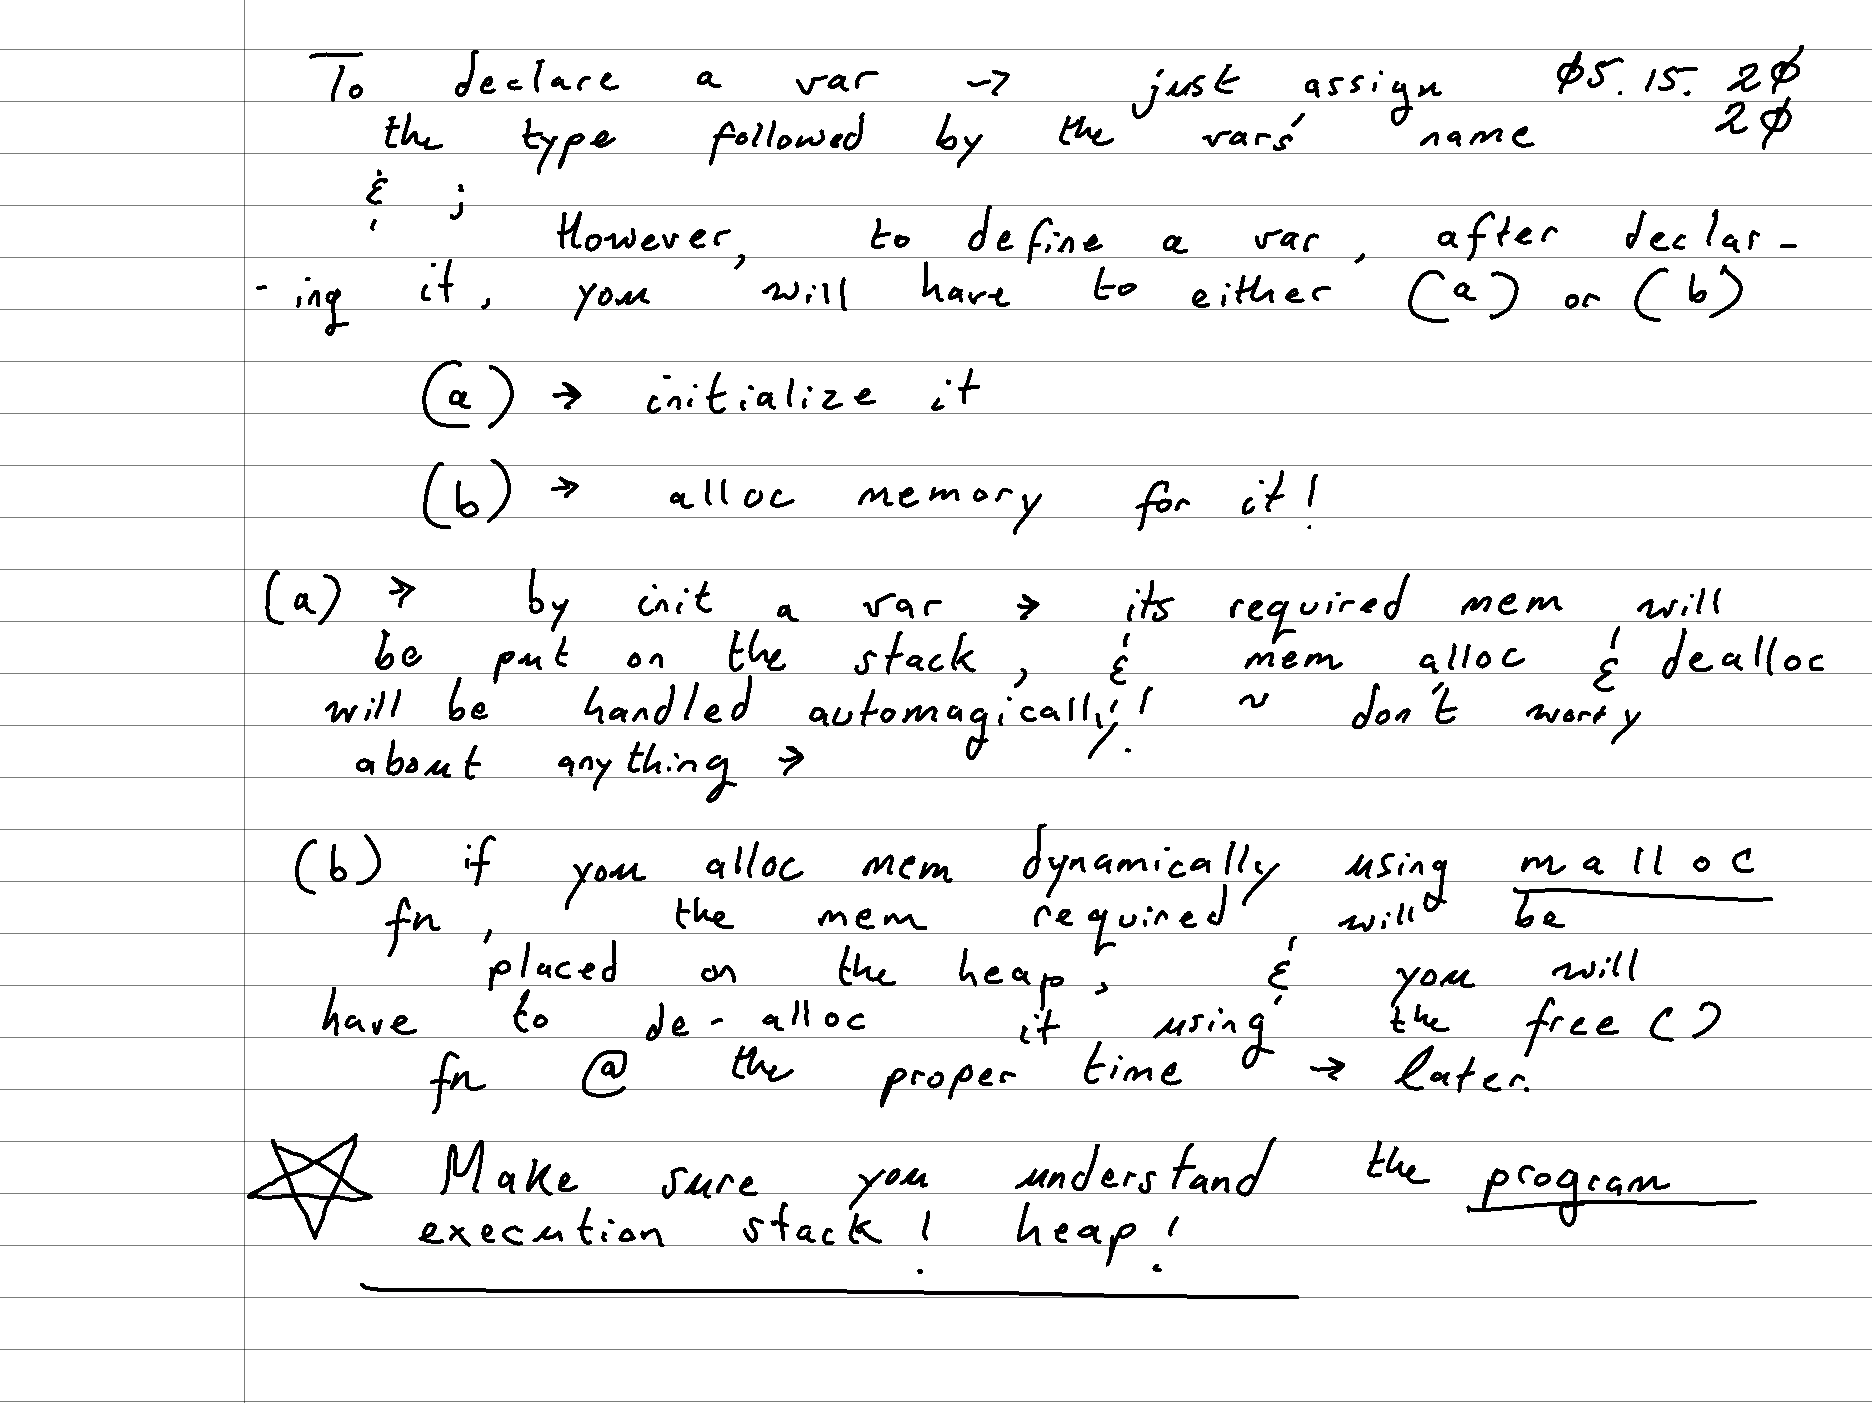 To declare a var → just assign 05.15.20
the type followed by the vars' name 20
& ;
However, to define a var, after declar-
-ing it, you will have to either (a) or (b)
(a) → initialize it
(b) → alloc memory for it!
(a) → by init a var → its required mem will
be put on the stack, & mem alloc & dealloc
will be handled automagically! ~ don't worry
about anything →
(b) if you alloc mem dynamically using malloc
fn, the mem required will be
placed on the heap, & you will
have to de-alloc it using the free()
fn @ the proper time → later.
Make sure you understand the program
execution stack! heap!